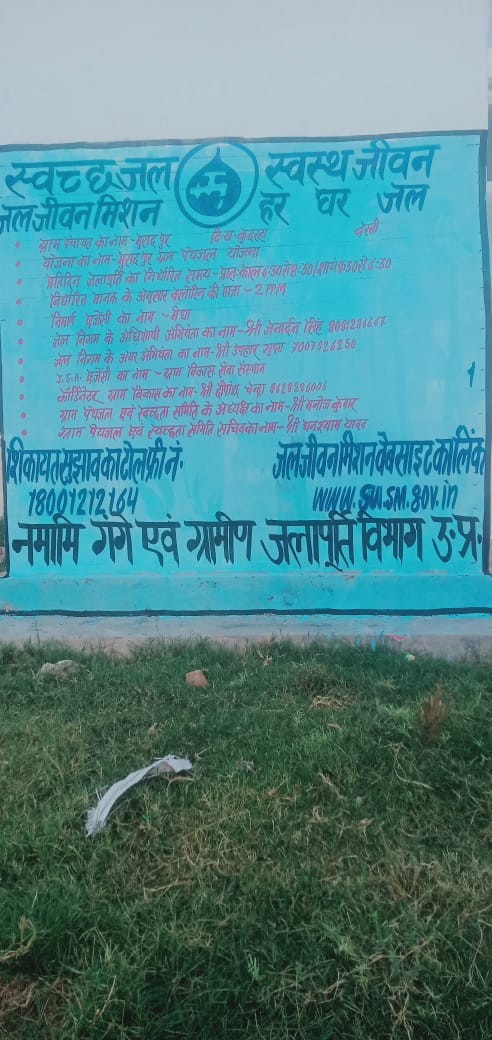 स्वच्छ जल स्वस्थ जीवन
जल जीवन मिशन हर घर जल
ग्राम पंचायत का नाम - मुरादपुर वि.ख. कुदरहा बस्ती
योजना का नाम - मुरादपुर ग्राम पेयजल योजना
प्रतिदिन जलापूर्ति का निर्धारित समय - प्रातः काल 6:30 से 8:30/सायं 4:30 से 6:30
निर्धारित मानक के अनुसार क्लोरिन की मात्रा - 2 PPM
निर्माण एजेंसी का नाम - मेघा
जल निगम के अधिशाषी अभियंता का नाम - श्री जनार्दन सिंह
जल निगम के अवर अभियंता का नाम - श्री उपहार गुप्ता 7007926250
I.S.A. एजेंसी का नाम - ग्राम विकास सेवा संस्थान
कोर्डिनेटर ग्राम विकास का नाम - श्री दीपांश चन्द्रा
ग्राम पेयजल एवं स्वच्छता समिति के अध्यक्ष का नाम - श्री मनोज कुमार
ग्राम पेयजल एवं स्वच्छता समिति सचिव का नाम - श्री घनश्याम यादव
1
शिकायत सुझाव का टोल फ्री नं. जल जीवन मिशन वेबसाइट का लिंक
18001212164 www.swsm.gov.in
नमामि गंगे एवं ग्रामीण जलापूर्ति विभाग उ.प्र.